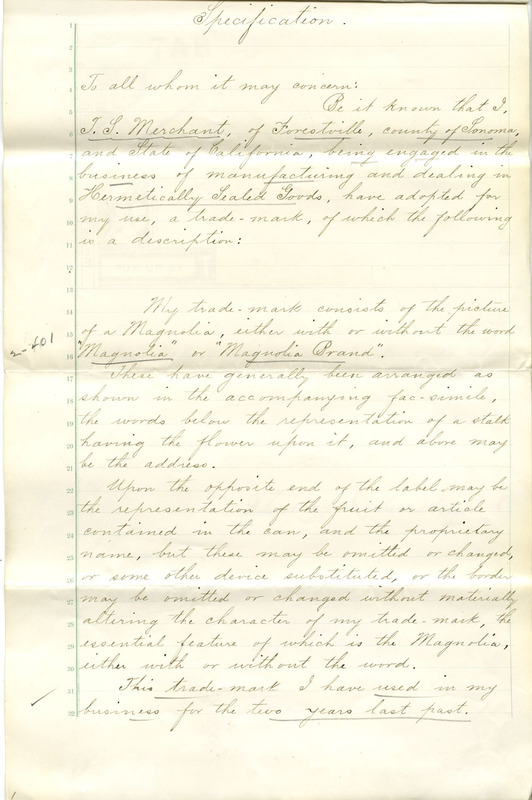 Specification.
To all whom it may concern:
Be it known that I,
T. S. Merchant, of Forestville, county of Sonoma,
and State of California, being engaged in the
business of manufacturing and dealing in
Hermetically Sealed Goods, have adopted for
my use, a trade-mark, of which the following
is a description:
My trade-mark consists of the picture
of a Magnolia, either with or without the word
"Magnolia" or "Magnolia Brand".
These have generally been arranged as
shown in the accompanying fac-simile,
the words below the representation of a stalk
having the flower upon it, and above may
be the address.
Upon the opposite end of the label may be
the representation of the fruit or article
contained in the can, and the proprietary
name, but these may be omitted or changed,
or some other device substituted, or the border
may be omitted or changed without materially
altering the character of my trade-mark, the
essential feature of which is the Magnolia,
either with or without the word.
This trade-mark I have used in my
business for the two years last past.
1
2
3
4
5
6
7
8
9
10
11
12
13
14
15
16
17
18
19
20
21
22
23
24
25
26
27
28
29
30
31
32